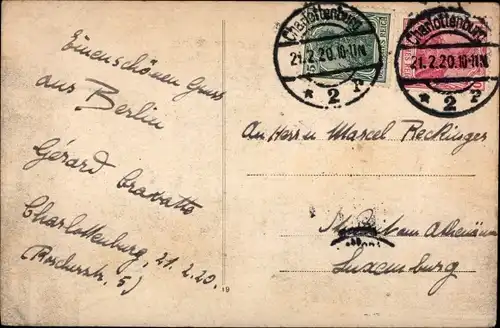 Einen schönen Gruss
aus Berlin
Gérard Cravatte
Charlottenburg, 21.2.20.
(Roscherstr. 5)
Charlottenburg
21.2.20.10-11N.
* 2 r
Charlottenburg
21.2.20.10-11N.
* 2 r
An Herrn Marcel Reckinger
am Athenäum
Luxemburg
19